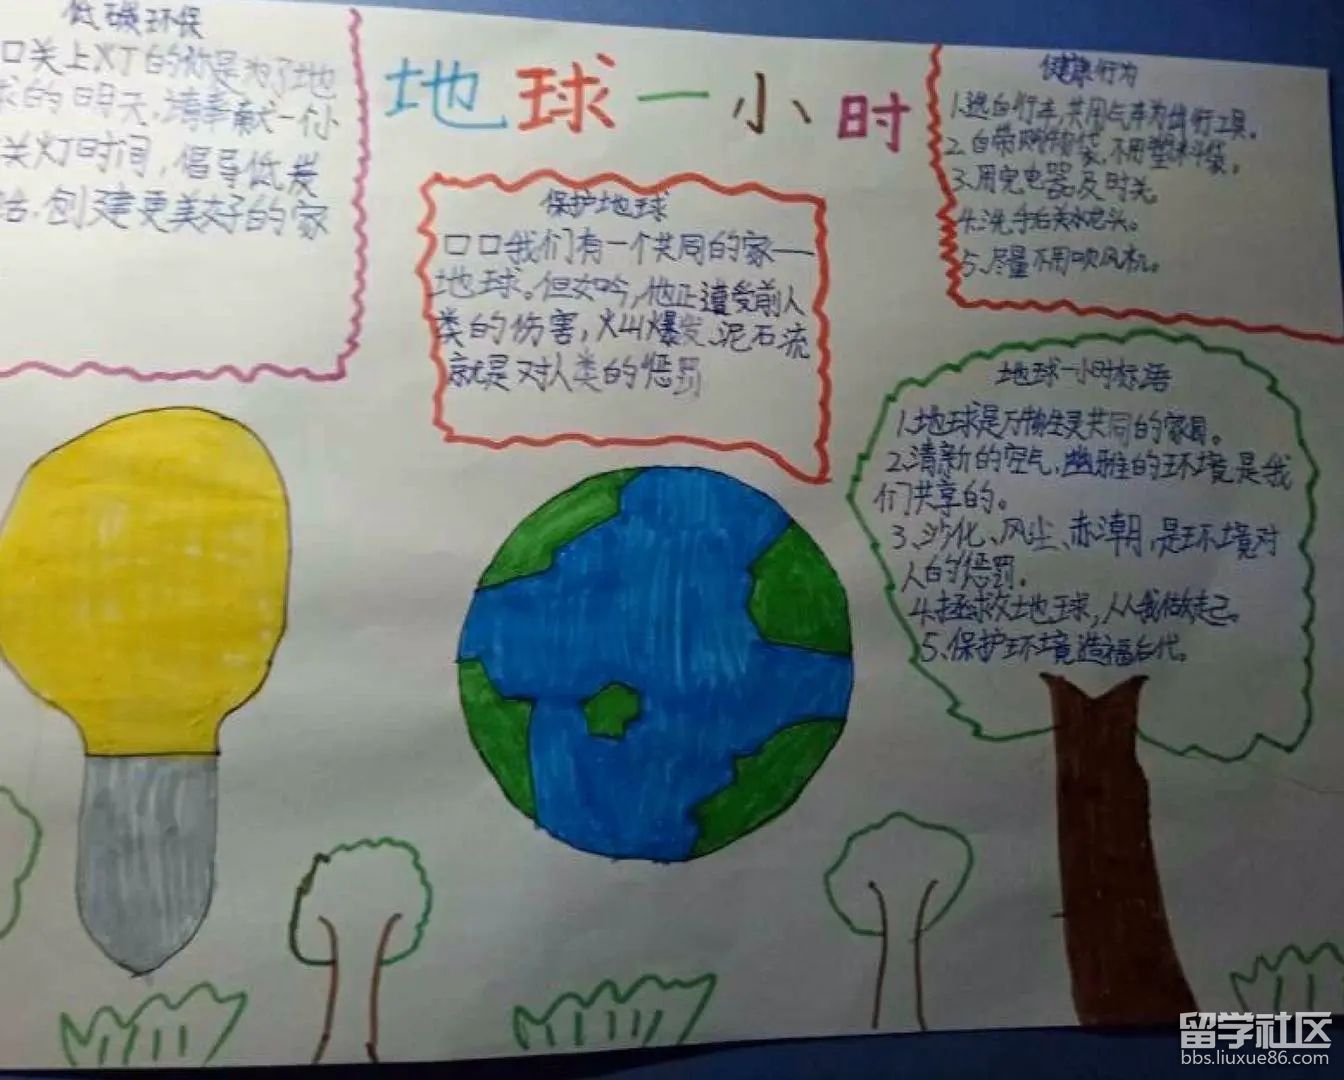 地球一小时
低碳环保
口关上灯的你是为了地
球的明天,请奉献一小
关灯时间,倡导低炭
活.创建更美好的家
保护地球
口口我们有一个共同的家——
地球。但如吟,他正遭受前人
类的伤害,火山爆发、泥石流
就是对人类的惩罚
健康行为
1.选自行车,共用气车为出行工具。
2.自带购物袋,不用塑料袋。
3.用完电器及时关。
4.洗手后关水龙头。
5.尽量不用吹风机。
地球一小时标语
1.地球是万物生灵共同的家园。
2.清新的空气,幽雅的环境是我
们共享的。
3、沙化、风尘、赤潮,是环境对
人的惩罚。
4.拯救地球,从我做起。
5、保护环境造福后代。
留学社区
bbs.liuxue86.com